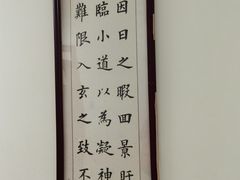 因日之暇回景旰
臨小道以為凝神
難限入玄之致不